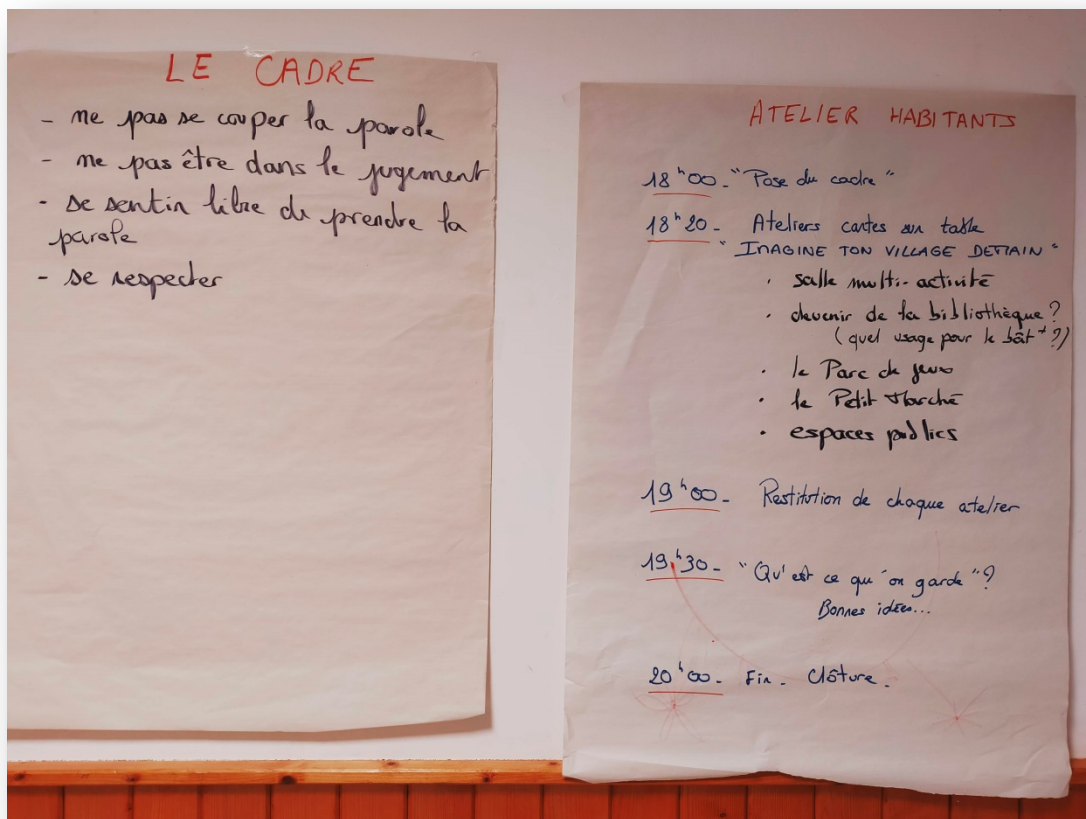 LE CADRE
- ne pas se couper la parole
- ne pas être dans le jugement
- se sentir libre de prendre la
parole
- se respecter
ATELIER HABITANTS
18h00 - "Pose du cadre"
18h20 - Ateliers cartes sur table
"IMAGINE TON VILLAGE DEMAIN"
· salle multi-activité
· devenir de la bibliothèque ?
(quel usage pour le bât+ ?)
· le Parc de jeux
· le Petit Marché
· espaces publics
19h00 - Restitution de chaque atelier
19h30 - "Qu'est ce qu'on garde" ?
Bonnes idées...
20h00 - Fin - Clôture.